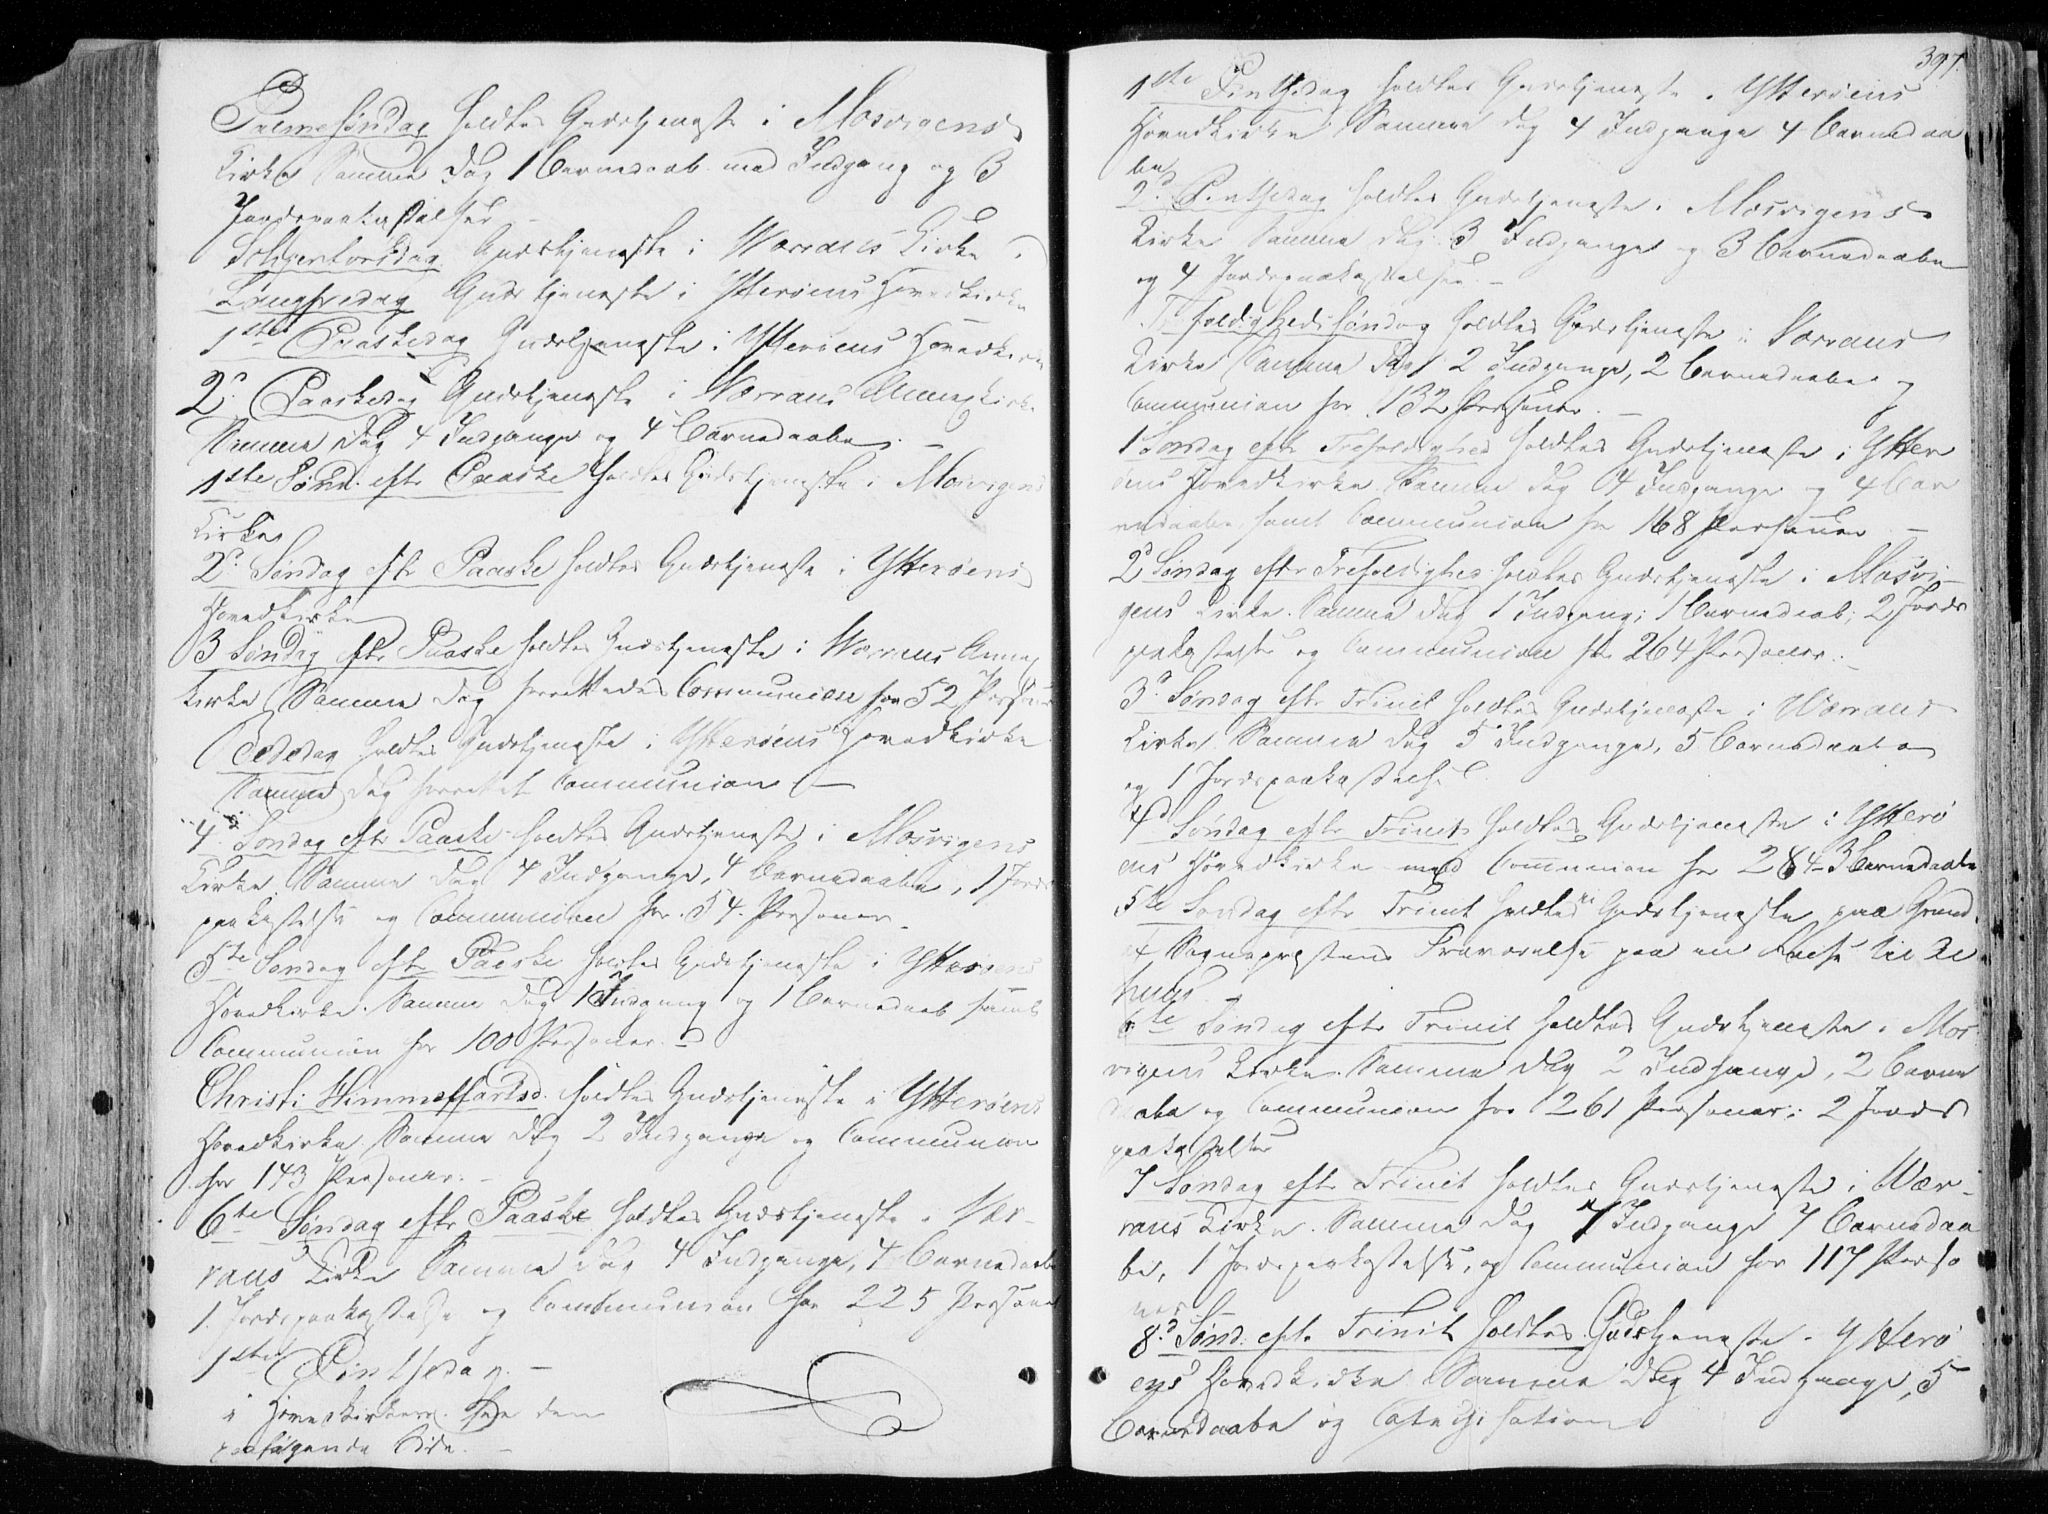 Palmesøndag holdtes Gudstjeneste i Mosvigens
Kirke Samme Dag 1 Barnedaab med Indgang og 3
Jordpaakastelser
Schjertorsdag Gudstjeneste i Værrans Kirke
Langfredag Gudstjeneste i Ytterøens Hovedkirke
1ste Paaskedag Gudstjeneste i Ytterøens Hovedkirke
2d Paaskedag Gudstjeneste i Værrans Annexkirke
Samme Dag 4 Indgange og 4 Barnedaabe. –
1ste Sønd. eft Paaske holdtes Gudstjeneste i Mosvigens
Kirke
2d Søndag eftr Paaske holdtes Gudstjeneste i Ytterøens
Hovedkirke
3 Søndag eftr Paaske holdtes Gudstjeneste i Værrans Annex
kirke Samme Dag forrettedes Communion for 52 Personer
Bededag holdtes Gudstjeneste i Ytterøens Hovedkirke
Samme Dag forrettet Communion –
4d Søndag eftr Paaske holdtes Gudstjeneste i Mosvigens
Kirke Samme Dag 4 Indgange, 4 Barnedaabe, 1 Jords
paakastelse og Communion for 54 Personer
5te Søndag eftr Paaske holdtes Gudstjeneste i Ytterøens
Hovedkirke. Samme Dag 1 Indgang og 1 Barnedaab samt
Communion for 100 Personer. –
Christi Himmelfartsd. holdtes Gudstjeneste i Ytterøens
Hovedkirke Samme Dag 2 Indgange og Communion
for 143 Personer. –
6te Søndag eftr Paaske holdtes Gudstjeneste i Vær-
rans Kirke Samme Dag 4 Indgange, 4 Barnedaabe
1 Jordspaakastelse og Communion for 225 Personer
1ste Pintsedag. –
i Hovedkirken. See den
paafølgende Side. –
397.
1ste Pintsedag holdtes Gudstjeneste i Ytterøens
Hovedkirke Samme Dag 4 Indgange 4 Barnedaa
be
2d Pintsedag holdtes Gudstjeneste i Mosvigens
Kirke Samme Dag 3 Indgange og 3 Barnedaabe
og 4 Jordspaakastelser. –
Trefoldighedssøndag holdtes Gudstjeneste i Værrans
Kirke Samme Dag 2 Indgange, 2 Barnedaabe og
Communion for 132 Personer. –
1 Søndag eftr Trefoldighed holdtes Gudstjeneste i Ytter
øens Hovedkirke Samme Dag 4 Indgange og 4 Bar
nedaabe, samt Communion for 168 Personer –
2d Søndag eftr Trefoldighed holdtes Gudstjeneste i Mosvi-
gens Kirke. Samme Dag 1 Indgang; 1 Barnedaab; 2 Jords
paakastelse og Communion for 264 Personer. –
3d Søndag eftr Trinit holdtes Gudstjeneste i Værrans
Kirke. Samme Dag 5 Indgange, 5 Barnedaabe
og 1 Jordspaakastelse
4d Søndag eftr Trinit holdtes Gudstjeneste i Ytterø
ens Hovedkirke med Communion for 284 – 3 Barnedaabe
5te Søndag eftr Trinit holdtes ei Gudstjeneste paa Grund
af Sognepræstens Fraværelse paa en Reise til
huus.
6te Søndag eftr Trinit holdtes Gudstjeneste i Mos
vigens Kirke. Samme Dag 2 Indgange, 2 Barne
daabe og Communion for 261 Personer. 2 Jords
paakastelser
7 Søndag eftr Trinit holdtes Gudstjeneste i Vær-
rans Kirke. Samme Dag 7 Indgange 7 Barnedaa
be, 1 Jordspaakastelse, og Communion for 117 Perso
ner
8d Sønd. eft. Trinit holdtes Gudstjeneste i Ytterø
ens Hovedkirke Samme Dag 4 Indgange, 5
Barnedaabe og Catechisation